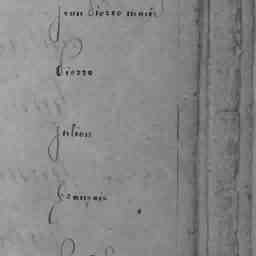 Jean Pierre
Pierre
Julien
François